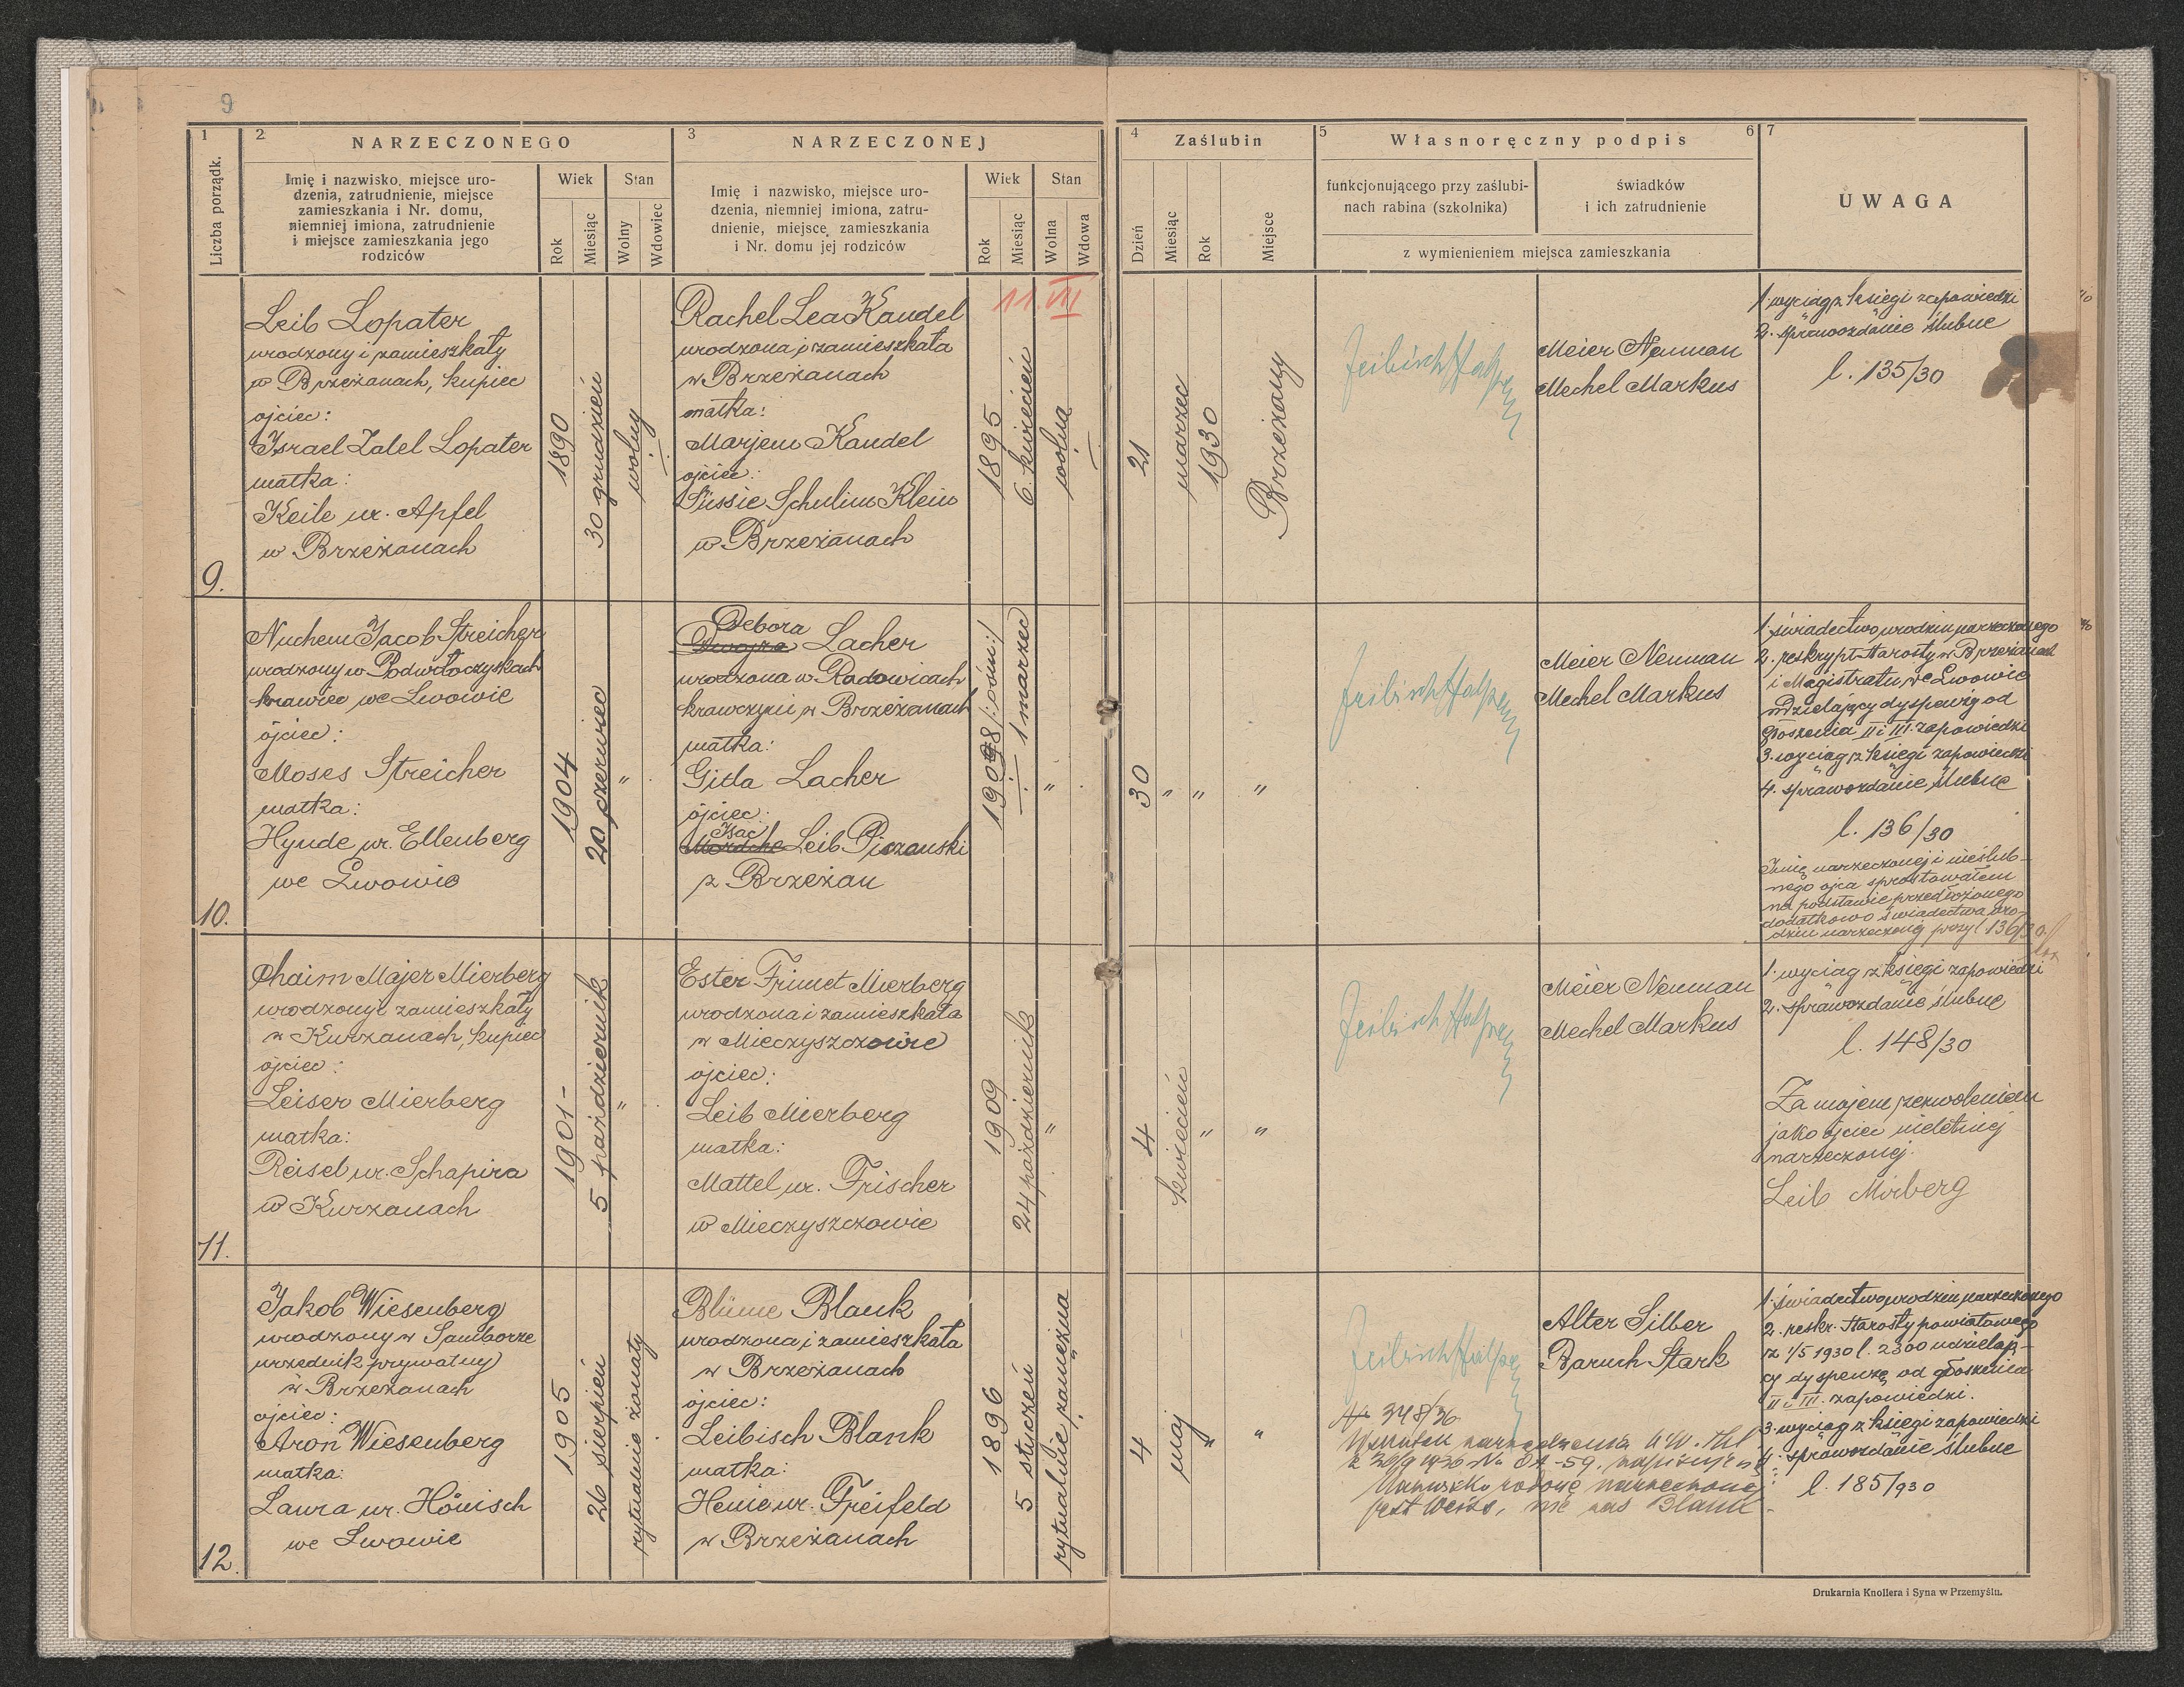 9
1
2
NARZECZONEGO
3
NARZECZONEJ
4
Zaślubin
5
Własnoręczny podpis
6
7
Liczba porządk.
Imię i nazwisko, miejsce uro-
dzenia, zatrudnienie, miejsce
zamieszkania i Nr. domu,
niemniej imiona, zatrudnienie
i miejsce zamieszkania jego
rodziców
Wiek
Rok
Miesiąc
Stan
Wolny
Wdowiec
Imię i nazwisko, miejsce uro-
dzenia, niemniej imiona, zatru-
dnienie, miejsce zamieszkania
i Nr. domu jej rodziców
Wiek
Rok
Miesiąc
Stan
Wolna
Wdowa
Dzień
Miesiąc
Rok
Miejsce
funkcjonującego przy zaślubi-
nach rabina (szkolnika)
świadków
i ich zatrudnienie
z wymienieniem miejsca zamieszkania
UWAGA
9.
Leib Lopater
urodzony i zamieszkały
w Brzeżanach, kupiec
ojciec:
Israel Zalel Lopater
matka:
Keile ur. Apfel
w Brzeżanach
1890
30 grudzień
wolny
Rachel Lea Kandel
urodzona i zamieszkała
w Brzeżanach
matka:
Marjem Kandel
ojciec:
Süssie Schulim Klein
w Brzeżanach
11.VII
1895
6. kwiecień
wolna
21
marzec
1930
Brzeżany
Feibisch Halpern
Meier Neuman
Mechel Markus
1. wyciąg z księgi zapowiedzi
2. sprawozdanie ślubne
l. 135/30
10.
Nuchem Jacob Streicher
urodzony w Podwłoczyskach
krawiec we Lwowie
ojciec:
Moses Streicher
matka:
Hynde ur. Ellenberg
we Lwowie
1904
20 czerwiec
"
Debora
Dwojra Lacher
urodzona w Radowicach
krawczyni w Brzeżanach
matka:
Gitla Lacher
ojciec:
Isac
Mordche Leib Pizanski
z Brzeżan
1908 /:ósm:/
1 marzec
"
30
"
"
"
Feibisch Halpern
Meier Neuman
Mechel Markus
1. świadectwo urodzin narzeczonego
2. reskrypt Starosty w Brzeżanach
i Magistratu we Lwowie
udzielający dyspenzę od
głoszenia II i III. zapowiedzi
3. wyciąg z księgi zapowiedzi
4. sprawozdanie ślubne
l. 136/30
Imię narzeczonej i nieślub-
nego ojca sprostowałem
na podstawie przedłożonego
dodatkowo świadectwa uro-
dzin narzeczonej przy l 136/30
11.
Chaim Majer Mierberg
urodzony i zamieszkały
w Kurzanach, kupiec
ojciec:
Leiser Mierberg
matka:
Reisel ur. Schapira
w Kurzanach
1901-
5 październik
"
Ester Frimet Mierberg
urodzona i zamieszkała
w Mieczyszczowie
ojciec:
Leib Mierberg
matka:
Mattel ur. Frischer
w Mieczyszczowie
1909
24 październik
"
4
kwiecień
"
"
Feibisch Halpern
Meier Neuman
Mechel Markus
1. wyciąg z księgi zapowiedzi
2. sprawozdanie ślubne
l. 148/30
Za mojem zezwoleniem
jako ojciec nieletniej
narzeczonej.
Leib Mirberg
12.
Jakob Wiesenberg
urodzony w Samborze
urzędnik prywatny
w Brzeżanach
ojciec:
Aron Wiesenberg
matka:
Laura ur. Hönisch
we Lwowie
1905
26 sierpień
rytualnie żonaty
Blüme Blank
urodzona i zamieszkała
w Brzeżanach
ojciec:
Leibisch Blank
matka:
Henie ur. Freifeld
w Brzeżanach
1896
5 styczeń
rytualnie zamężna
4
maj
"
"
Feibisch Halpern
Alter Silber
Baruch Stark
No 348/36
Wskutek zarządzenia
nazwisko rodowe narzeczonej
jest Weiss, nie zaś Blank
1. świadectwo urodzin narzeczonego
2. reskr. Starosty powiatowego
z 1/5 1930 l. 2300 udzielają-
cy dyspenzę od głoszenia
II i III. zapowiedzi.
3. wyciąg z księgi zapowiedzi
4. sprawozdanie ślubne
l. 185/930
Drukarnia Knollera i Syna w Przemyślu.